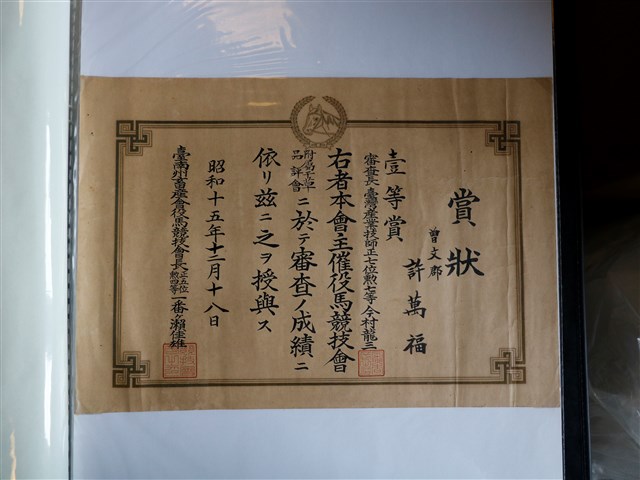 賞狀
曾文郡
許萬福
壹等賞
審査長 臺灣產業技師正七位勲七等 今村龍三
右者本會主催役馬競技會
附屬
品評會
ニ於テ審査ノ成績ニ
依リ玆ニ之ヲ授與ス
昭和十五年十二月十八日
臺南州畜產會役馬競技會長 正五位勲四等 一番ヶ瀨佳雄